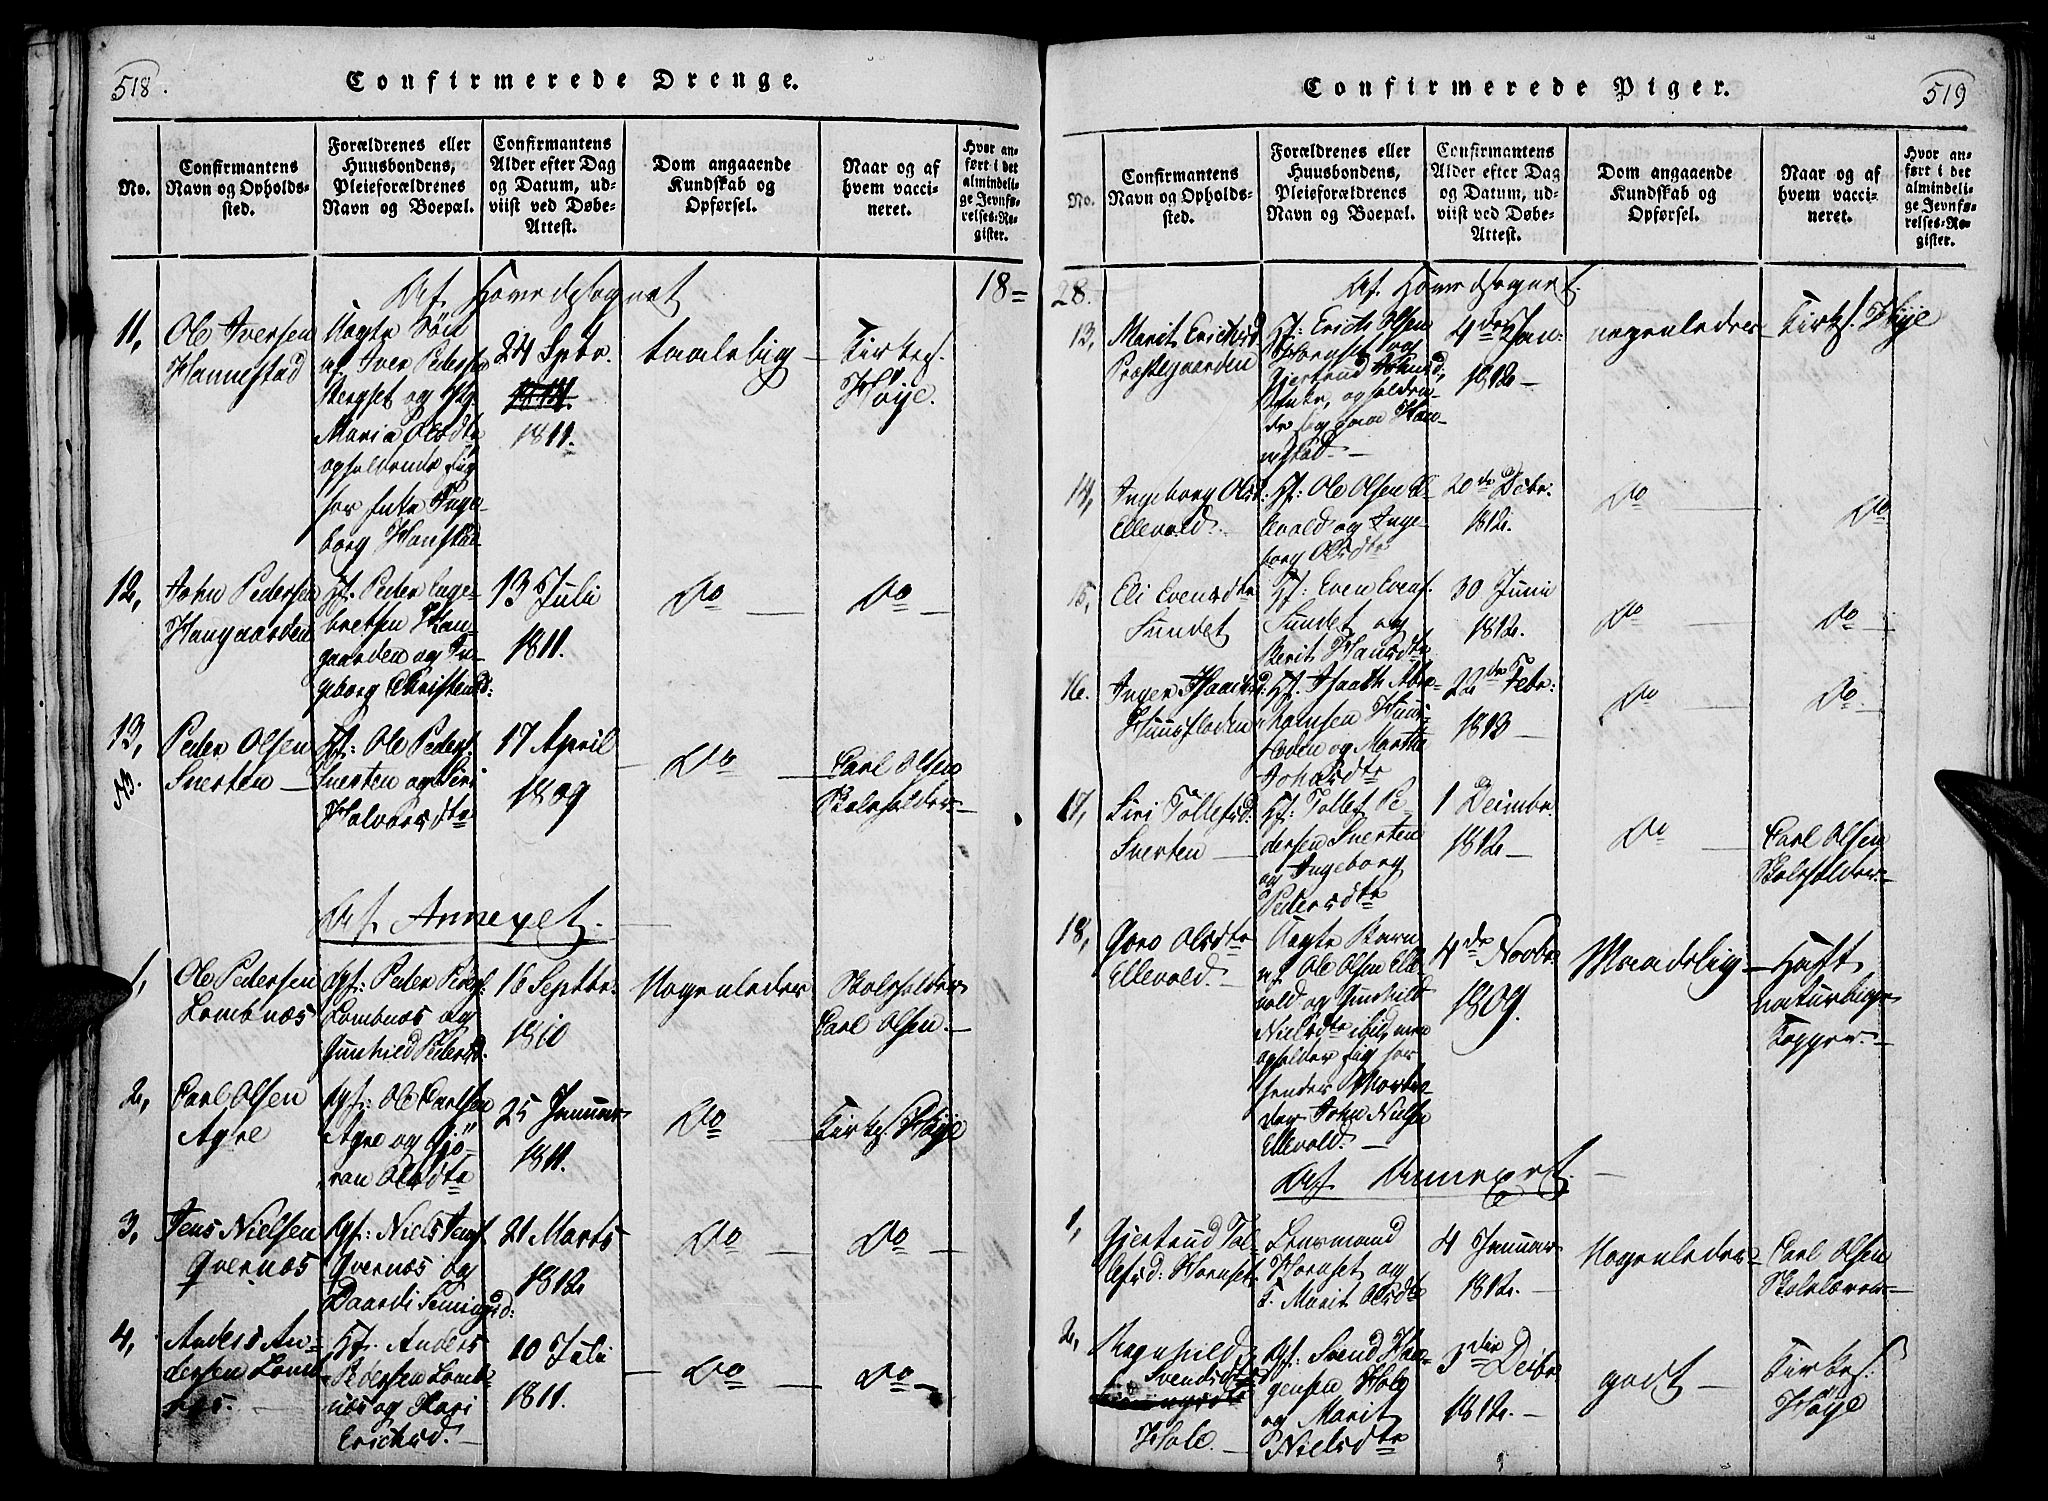 518.
Confirmerede Drenge.
No.
Confirmantens
Navn og Opholds-
sted.
Forældrenes eller
Huusbondens,
Pleieforældrenes
Navn og Boepæl.
Confirmantens
Alder efter Dag
og Datum, ud-
viist ved Døbe-
Attest.
Dom angaaende
Kundskab og
Opførsel.
Naar og af
hvem vacci-
neret.
Hvor an-
ført i det
almindeli-
ge Jevnfø-
relses-Re-
gister.
Af Hovedsognet
18=
11,
Ole Iversen
Hannestad
Uægte Sön
af Iver Peders.
Bergset og
Maria Olsdtr
opholdende sig
hos Inge-
borg Hanstad
24 Sptbr.
1811.
taalelig
Kirkes.
Höye.
12,
John Pedersen
Haugaarden
Gf. Peder Inge-
bretsen Hau-
gaarden og In-
geborg Christensd:
13 Juli
1811.
Do
Do
13,
Peder Olsen
Snerten
Gf: Ole Peders.
Snerten og Siri
Halvorsdtr
17 April
1809
Do
Carl Olsen
Skoleholder
Af Annexet.
1,
Ole Pedersen
Lombnæs
Gf: Peder
Lombnæs og
Gunhild Pedersd:
16 Septbr.
1810
Nogenledes
Skoleholder
Carl Olsen
2,
Carl Olsen
Agre
Gf: Ole Carlsen
Agre og Gjö-
ran Olsdtr
25 Januar
1811.
Do
Kirkes. Höye
3,
Jens Nielsen
Qvernæs
Gf: Niels Jens.
Qvernæs og
Baardi Semingsd:
21 Marts
1812
Do
Do
4,
Anders An-
dersen Lomb-
næs.
Gf. Anders
Pedersen Lomb-
næs og Kari
Erichsd.
10 Juli
1811.
Do
Do
519
Confirmerede Piger.
No.
Confirmantens
Navn og Opholds-
sted.
Forældrenes eller
Huusbondens,
Pleieforældrenes
Navn og Boepæl.
Confirmantens
Alder efter Dag
og Datum, ud-
viist ved Døbe-
Attest.
Dom angaaende
Kundskab og
Opførsel.
Naar og af
hvem vacci-
neret.
Hvor an-
ført i det
almindeli-
ge Jevnfø-
relses-Re-
gister.
28.
Af Hovedsognet.
13,
Marit Erichsd
Præstegaarden
Gf: Erich Olsen
Hornset og
Gjertrud
opholden-
de sig paa Han-
nestad.
4de Jan:
1812
nogenledes
Kirkes. Höye
14,
Ingeborg Olsd:
Ellevold.
Gf: Ole Olsen El-
levold og Inge-
borg Olsdtr
20de Octbr.
1812.
Do
Do
15,
Eli Evensdtr
Sundet
Gf: Even Evens.
Sundet og
Berit Hansdtr
30 Junii
1812.
Do
Do
16.
Inger Isaachsd:
Huusfloden
Gf. Isaach Abra-
hamsen Huus-
floden og Marthe
Johansdtr
22de Febr:
1813
Do
Do
17,
Siri Tollefsd:
Snerten
Gf: Tollef Pe-
dersen Snerten
og Ingeborg
Pedersdtr
1 Decimbr.
1812
Do
Carl Olsen
Skoleholder.
18,
Goro Olsdtr
Ellevold.
Uægte Barn
af Ole Olsen Elle-
vold og Gunhild
Nielsdtr ibid, men
opholder sig hos
hendes Morbro-
der John Nielsen
Ellevold.
4de Novbr
1809.
Maadelig
Haft
naturlige
Kopper.
Af Annexet.
1,
Gjertrud Tol-
lefsd: Hornset
Lensmand
Hornset og
Marit Olsdtr
4 Januar
1812.
Nogenledes
Carl Olsen
Skolelærer
2,
Magnhild
Svendsdtr
Hole.
Gf: Svend Haa-
gensen Hole
og Marit
Nielsdtr
3die Decbr
1812.
godt
Kirkes.
Höye